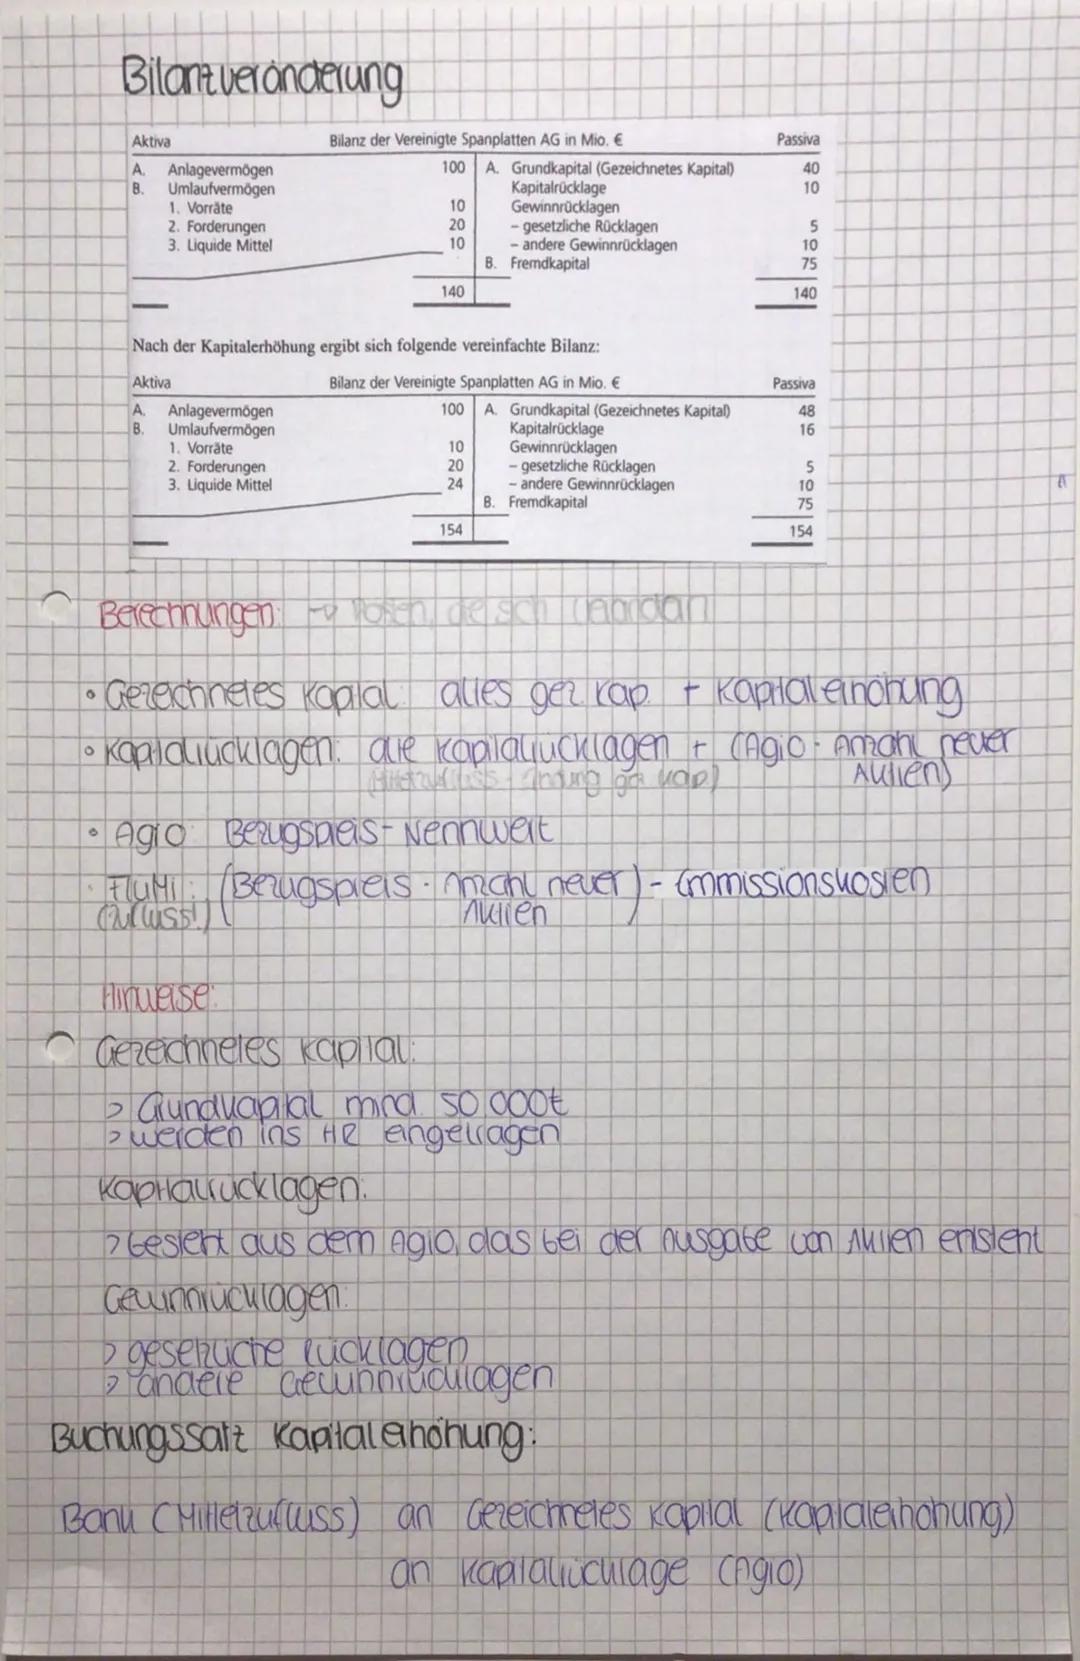 Bilanzveränderung
Aktiva Bilanz der Vereinigte Spanplatten AG in Mio. € Passiva
A. Anlagevermögen 100 A. Grundkapital (Gezeichnetes Kapital) 40
B. Umlaufvermögen Kapitalrücklage 10
1. Vorräte 10 Gewinnrücklagen
2. Forderungen 20 – gesetzliche Rücklagen 5
3. Liquide Mittel 10 – andere Gewinnrücklagen 10
B. Fremdkapital 75
140 140
Nach der Kapitalerhöhung ergibt sich folgende vereinfachte Bilanz:
Aktiva Bilanz der Vereinigte Spanplatten AG in Mio. € Passiva
A. Anlagevermögen 100 A. Grundkapital (Gezeichnetes Kapital) 48
B. Umlaufvermögen Kapitalrücklage 16
1. Vorräte 10 Gewinnrücklagen
2. Forderungen 20 – gesetzliche Rücklagen 5
3. Liquide Mittel 24 – andere Gewinnrücklagen 10
B. Fremdkapital 75
154 154
Berechnungen: → Posten, die sich verändern
• Gezeichnetes Kapital: altes gez. Kap. + Kapitalerhöhung
• Kapitalrücklagen: alte Kapitalrücklagen + (Agio · Anzahl neuer
Aktien)
(Mittelzufluss - gez. Kap)
• Agio: Bezugspreis - Nennwert
• FluMi: (Bezugspreis · Anzahl neuer) - Emmissionskosten
(Zufluss!) Aktien
Hinweise:
Gezeichnetes Kapital:
> Grundkapital mind. 50.000€
> werden ins HR eingetragen
Kapitalrücklagen:
> besteht aus dem Agio, das bei der Ausgabe von Aktien entsteht
Gewinnrücklagen:
> gesetzliche Rücklagen
> andere Gewinnrücklagen
Buchungssatz Kapitalerhöhung:
Bank (Mittelzufluss) an Gezeichnetes Kapital (Kapitalerhöhung)
an Kapitalrücklage (Agio)